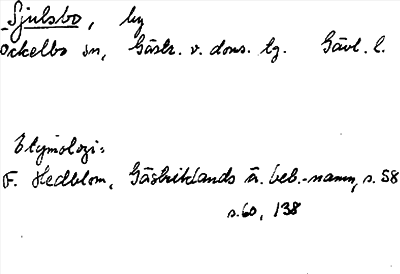 Sjulsbo, by
Ockelbo sn, Gästr. v. doms. lg. Gävl. l.
Etymologi:
F. Hedblom, Gästriklands ä. beb.-namn, s. 58
s. 60, 138